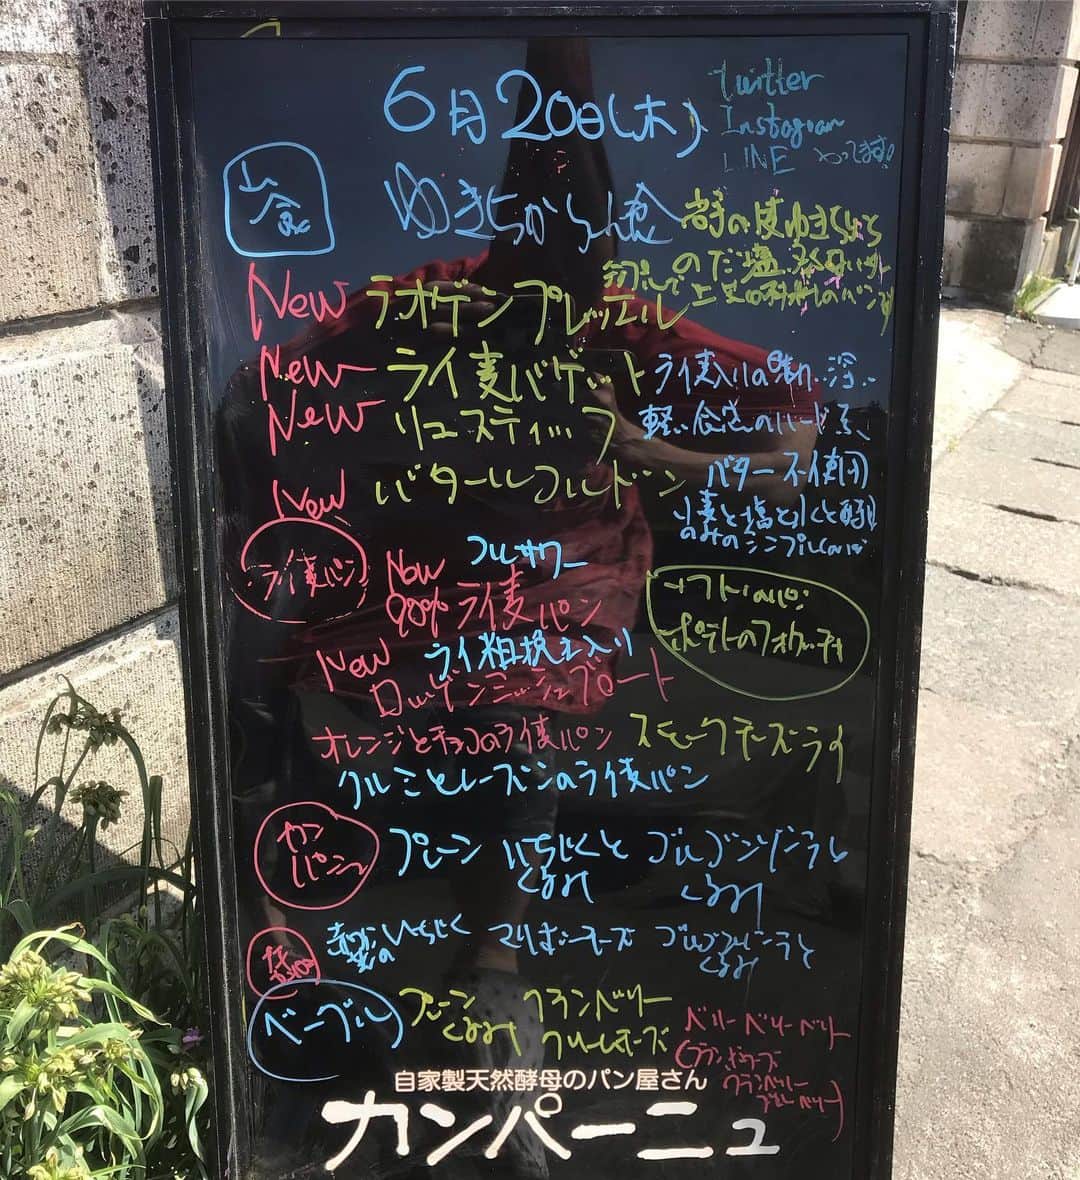 6月20日(木)
twitter
Instagram
LINE やってます!
山食
ゆきちから食
New ラオゲンプレッツェル
New ライ麦バゲット ライ麦入りの
New リュスティック 軽い食感のハード系
New バタールフルドン バター不使用
小麦と塩と水と酵母
のみのシンプル
ライ麦パン
New フルサワー
90%ライ麦パン
ソフトなパン
ポテトのフォカッチャ
New ライ粗挽き入り
ロッゲンミッシュブロート
オレンジとチョコのライ麦パン スモークチーズライ
クルミとレーズンのライ麦パン
カンパーニュ
プレーン いちじくとくるみ ゴルゴンゾーラとくるみ
いちじく チーズ ゴルゴンゾーラとくるみ
ベーグル
プレーン
くるみ
クランベリー
クリームチーズ
ベリーベリーベリー
クランベリー
自家製天然酵母のパン屋さん
カンパーニュ